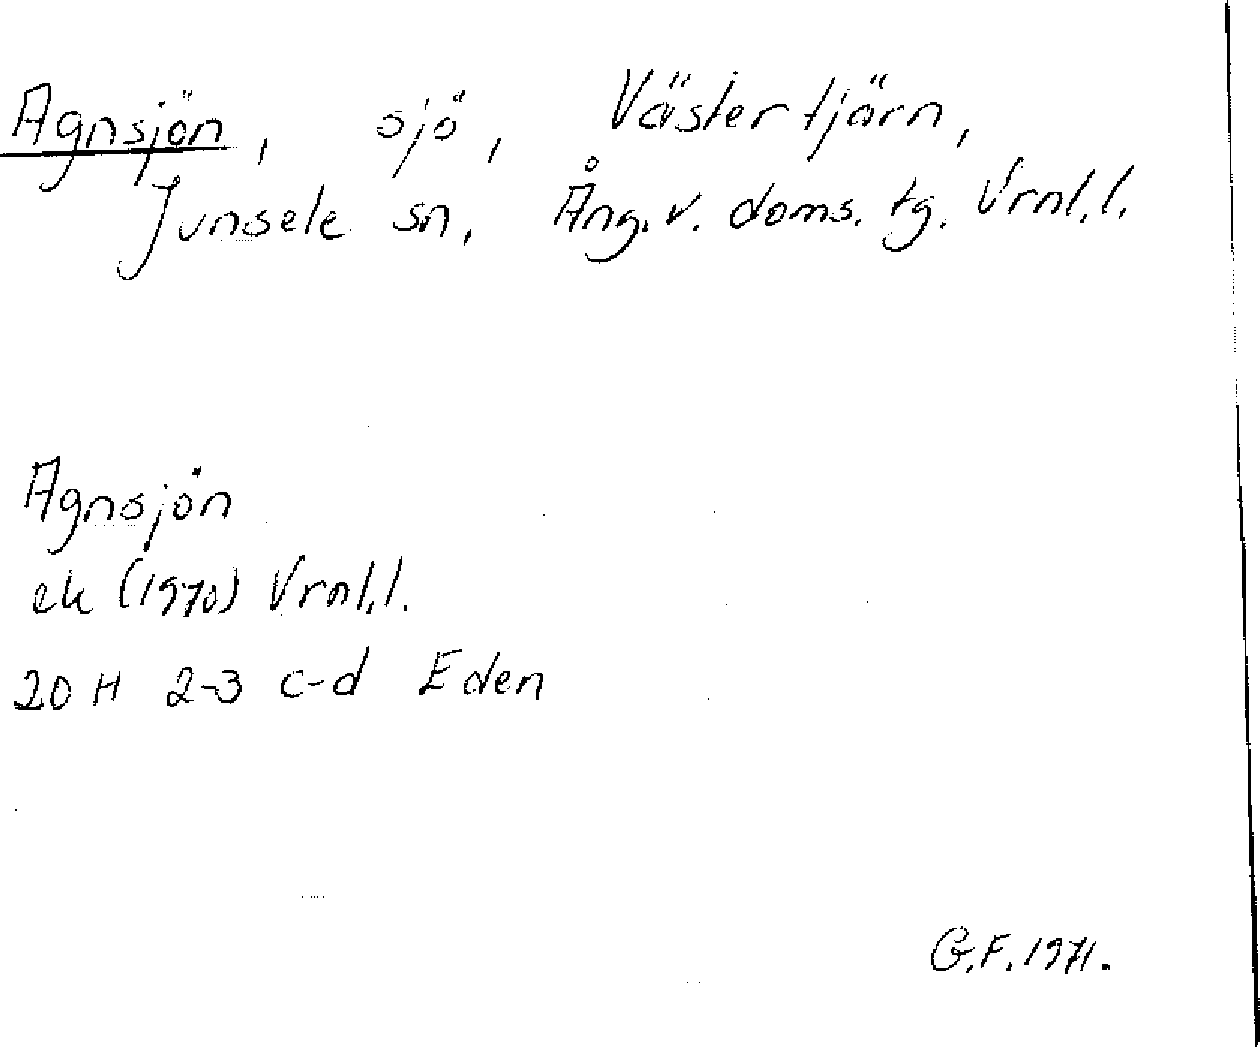 Agnsjön, sjö, Västertjärn,
Junsele sn, Ång. v. doms. tg. Vrnl.l.
Agnsjön
ek (1970) Vrnl.l.
20 H 2-3 c-d Eden
G.F. 1971.